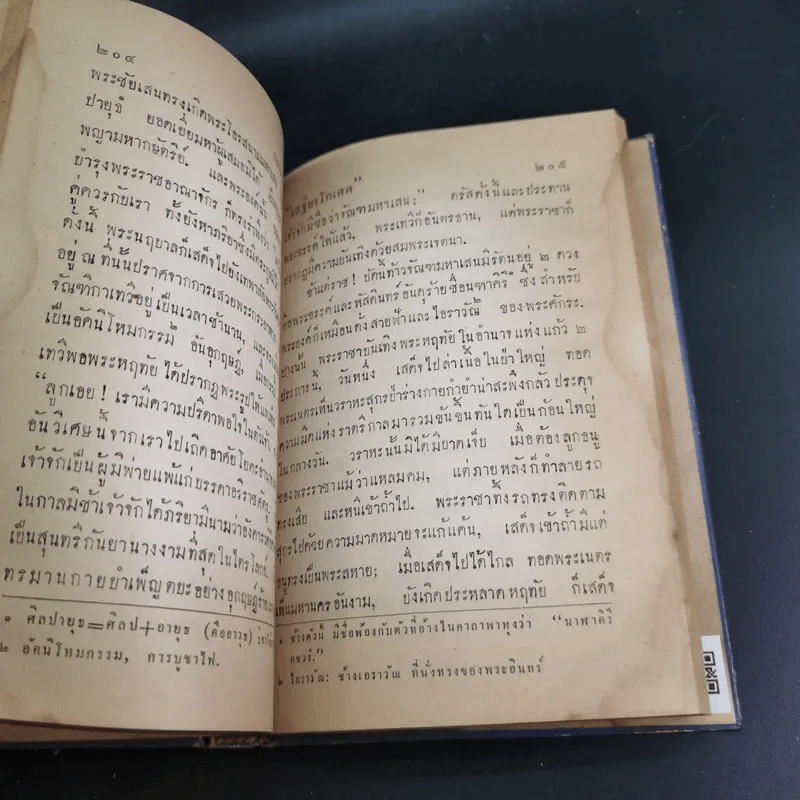 ๒๐๔
พระชัยเสนทรงเกิดพระโอรส
ปายุธ ยอดเยี่ยมหาผู้เสมอมิได้
พญามหากษัตริย์. และพระองค์นั้น
บำรุงพระราชอาณาจักร์ ก็ทรงรำพึงว่า
คู่ควรกับเรา ทั้งยังหาภริยาซึ่งมีตระกูล
ดั่งนี้ พระนฤบาลก็เสด็จไปยังเทพาลัย
อยู่ ณ ที่นั้นปราศจากการเสวยพระกระยา
จัณฑิกาเทวีอยู่เป็นเวลาช้านาน, และ
เป็นอัคนิโหมกรรม ๒ อันอุกฤษฎ์, เมื่อ
เทวีพอพระหฤทัย ได้ปรากฏพระรูปให้
“ลูกเอย! เรามีความปรีดาพอใจในตัวเจ้า,
อันวิเศษนี้จากเราไปเถิด อาศัยโยคะอำนาจ
เจ้าจักเป็นผู้มีพ่ายแพ้แก่บรรดาอริราชศัตรู,
ในกาลมิช้าเจ้าจักได้ภริยามีนามว่าอังคาร
เป็นสุนทรีกันยานางงามที่สุดในไตรโลก.
ทรมานกายบำเพ็ญตบะอย่างอุกฤษฎ์ร้าย
๑ ศิลปายุธ=ศิลป+อายุธ (คืออาวุธ)
๒ อัคนิโหมกรรม, การบูชาไฟ.
๒๐๕
เจ้าจักมีชื่อว่าจัณฑมหาเสน;” ตรัสดั่งนี้และประทาน
พระขรรค์ให้แล้ว, พระเทวีก็อันตรธาน, แต่พระราชาก็
ปรากฏมีความบันเทิงด้วยสมพระเจตนา.
ข้าแต่ราช! บัดนี้ท้าวจัณฑมหาเสนมีรัตนอยู่ ๒ ดวง
คือพระขรรค์และหัสดินทร์อันดุร้ายชื่อนฑาคิริ ๑ ซึ่งสำหรับ
พระองค์ก็เหมือนดั่งสายฟ้าและไอราวัณ ๒ ของพระศักระ.
ปางนั้น พระราชาบันเทิงพระหฤทัยในอำนาจแห่งแก้ว ๒
ประการนี้, วันหนึ่ง เสด็จไปล่าเนื้อในป่าใหญ่ ทอด
พระเนตรเห็นวราหะสุกรป่าร่างกายกำยำน่าสะพึงกลัว ประดุจ
ความมืดแห่งราตรีกาลมารวมขันชิ้นทันใดเป็นก้อนใหญ่
ในกลางวัน. วราหะนั้นมิได้มีบาดเจ็บ เมื่อต้องลูกธนู
ของพระราชาแม้ว่าแหลมคม, แต่ภายหลังก็ทำลายรถ
ทรงเสีย และหนีเข้าถ้ำไป. พระราชาทิ้งรถทรงติดตาม
สุกรไปด้วยความมาดหมายจะแก้แค้น, เสด็จเข้าถ้ำมีแต่
ธนูทรงเป็นพระสหาย; เมื่อเสด็จไปได้ไกล ทอดพระเนตร
เห็นมหานครอันงาม, บังเกิดประหลาดหฤทัย ก็เสด็จ
๑ ช้างตัวนี้ มีชื่อพ้องกับตัวที่อ้างในคาถาพาหุงว่า “นาฬาคิริ
คชวรํ.”
๒ ไอราวัณ: ช้างเอราวัณ ที่นั่งทรงของพระอินทร์